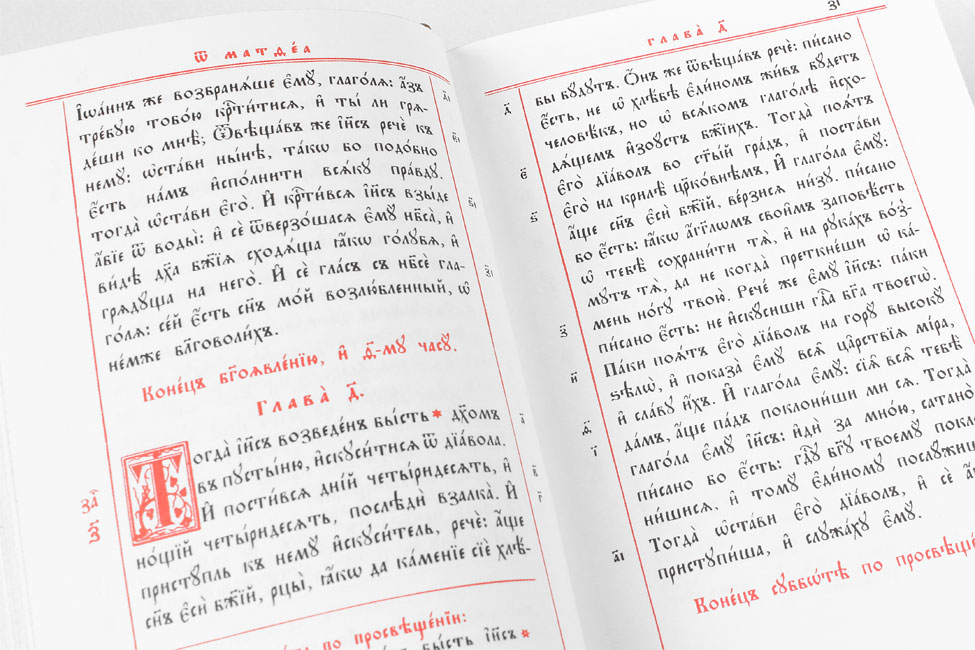 ѿ матѳе́а
І҆ѡа́ннъ же возбранѧ́ше є҆мꙋ̀, глаго́лѧ: а҆́зъ
тре́бꙋю тобо́ю крⷭ҇ти́тисѧ, и҆ ты́ ли грѧ-
де́ши ко мнѣ̀; Ѿвѣща́въ же і҆и҃съ речѐ къ
немꙋ̀: ѡ҆ста́ви ны́нѣ, та́кѡ бо подо́бно
є҆́сть на́мъ и҆спо́лнити всѧ́кꙋ пра́вдꙋ.
тогда̀ ѡ҆ста́ви є҆го̀. И҆ крⷭ҇ти́всѧ і҆и҃съ взы́де
а҆́бїе ѿ воды̀: и҆ сѐ ѿверзо́шасѧ є҆мꙋ̀ нб҃са̀, и҆
ви́дѣ дх҃а бж҃їѧ сходѧ́ща ꙗ҆́кѡ го́лꙋбѧ, и҆
грѧдꙋ́ща на него̀. И҆ сѐ гла́съ съ нб҃сѐ гла-
го́лѧ: се́й є҆́сть сн҃ъ мо́й возлю́бленный, ѡ҆
не́мже бл҃говоли́хъ.
Коне́цъ бг҃оѧвле́нїю, и҆ д҃-мꙋ часꙋ̀.
Глава̀ д҃.
Тогда̀ і҆и҃съ возведе́нъ бы́сть * дх҃омъ
въ пꙋсты́ню, и҆скꙋси́тисѧ ѿ дїа́вола.
И҆ пости́всѧ дні́й четы́ридесѧть, и҆
но́щїй четы́ридесѧть, послѣди́ взалка̀. И҆
пристꙋ́пль къ немꙋ̀ и҆скꙋси́тель, речѐ: а҆́ще
сн҃ъ є҆сѝ бж҃їй, рцы̀, ꙗ҆́кѡ да ка́менїе сїѐ хлѣ́-
по просвѣще́нїи:
бы́сть і҆и҃съ *
глава̀ д҃
бы бꙋ́дꙋтъ. Ѻ҆́нъ же ѿвѣща́въ речѐ: пи́сано
є҆́сть, не ѡ҆ хлѣ́бѣ є҆ди́номъ жи́въ бꙋ́детъ
человѣ́къ, но ѡ҆ всѧ́комъ глаго́лѣ и҆схо-
дѧ́щемъ и҆зоу́стъ бж҃їихъ. Тогда̀ поѧ́тъ
є҆го̀ дїа́волъ во ст҃ы́й гра́дъ, и҆ поста́ви
є҆го̀ на крилѣ̀ цр҃ко́внѣмъ, И҆ глаго́ла є҆мꙋ̀:
а҆́ще сн҃ъ є҆сѝ бж҃їй, ве́рзисѧ ни́зꙋ. пи́сано
бо є҆́сть: ꙗ҆́кѡ а҆́гг҃лѡмъ свои̑мъ заповѣ́сть
ѡ҆ тебѣ̀ сохрани́ти тѧ̀, и҆ на рꙋка́хъ во́з-
мꙋтъ тѧ̀, да не когда̀ преткне́ши ѡ҆ ка́-
мень но́гꙋ твою̀. Рече́ же є҆мꙋ̀ і҆и҃съ: па́ки
пи́сано є҆́сть: не и҆скꙋ́сиши гд҇а бг҃а твоегѡ̀.
Па́ки поѧ́тъ є҆го̀ дїа́волъ на горꙋ̀ высокꙋ̀
ѕѣлѡ̀, и҆ показа̀ є҆мꙋ̀ всѧ̑ ца́рствїѧ мі́ра,
и҆ сла́вꙋ и҆́хъ. И҆ глаго́ла є҆мꙋ̀: сїѧ̑ всѧ̑ тебѣ̀
да́мъ, а҆́ще па́дъ поклони́ши ми сѧ. Тогда̀
глаго́ла є҆мꙋ̀ і҆и҃съ: и҆дѝ за мно́ю, сатано̀
пи́сано бо є҆́сть: гд҇ꙋ бг҃ꙋ твоемꙋ̀
ни́шисѧ, и҆ томꙋ̀ є҆ди́номꙋ
Тогда̀ ѡ҆ста́ви є҆го̀ дїа́волъ, и҆ сѐ
пристꙋпи́ша, и҆ слꙋжа́хꙋ є҆мꙋ̀.
Коне́цъ сꙋббѡ́тѣ по